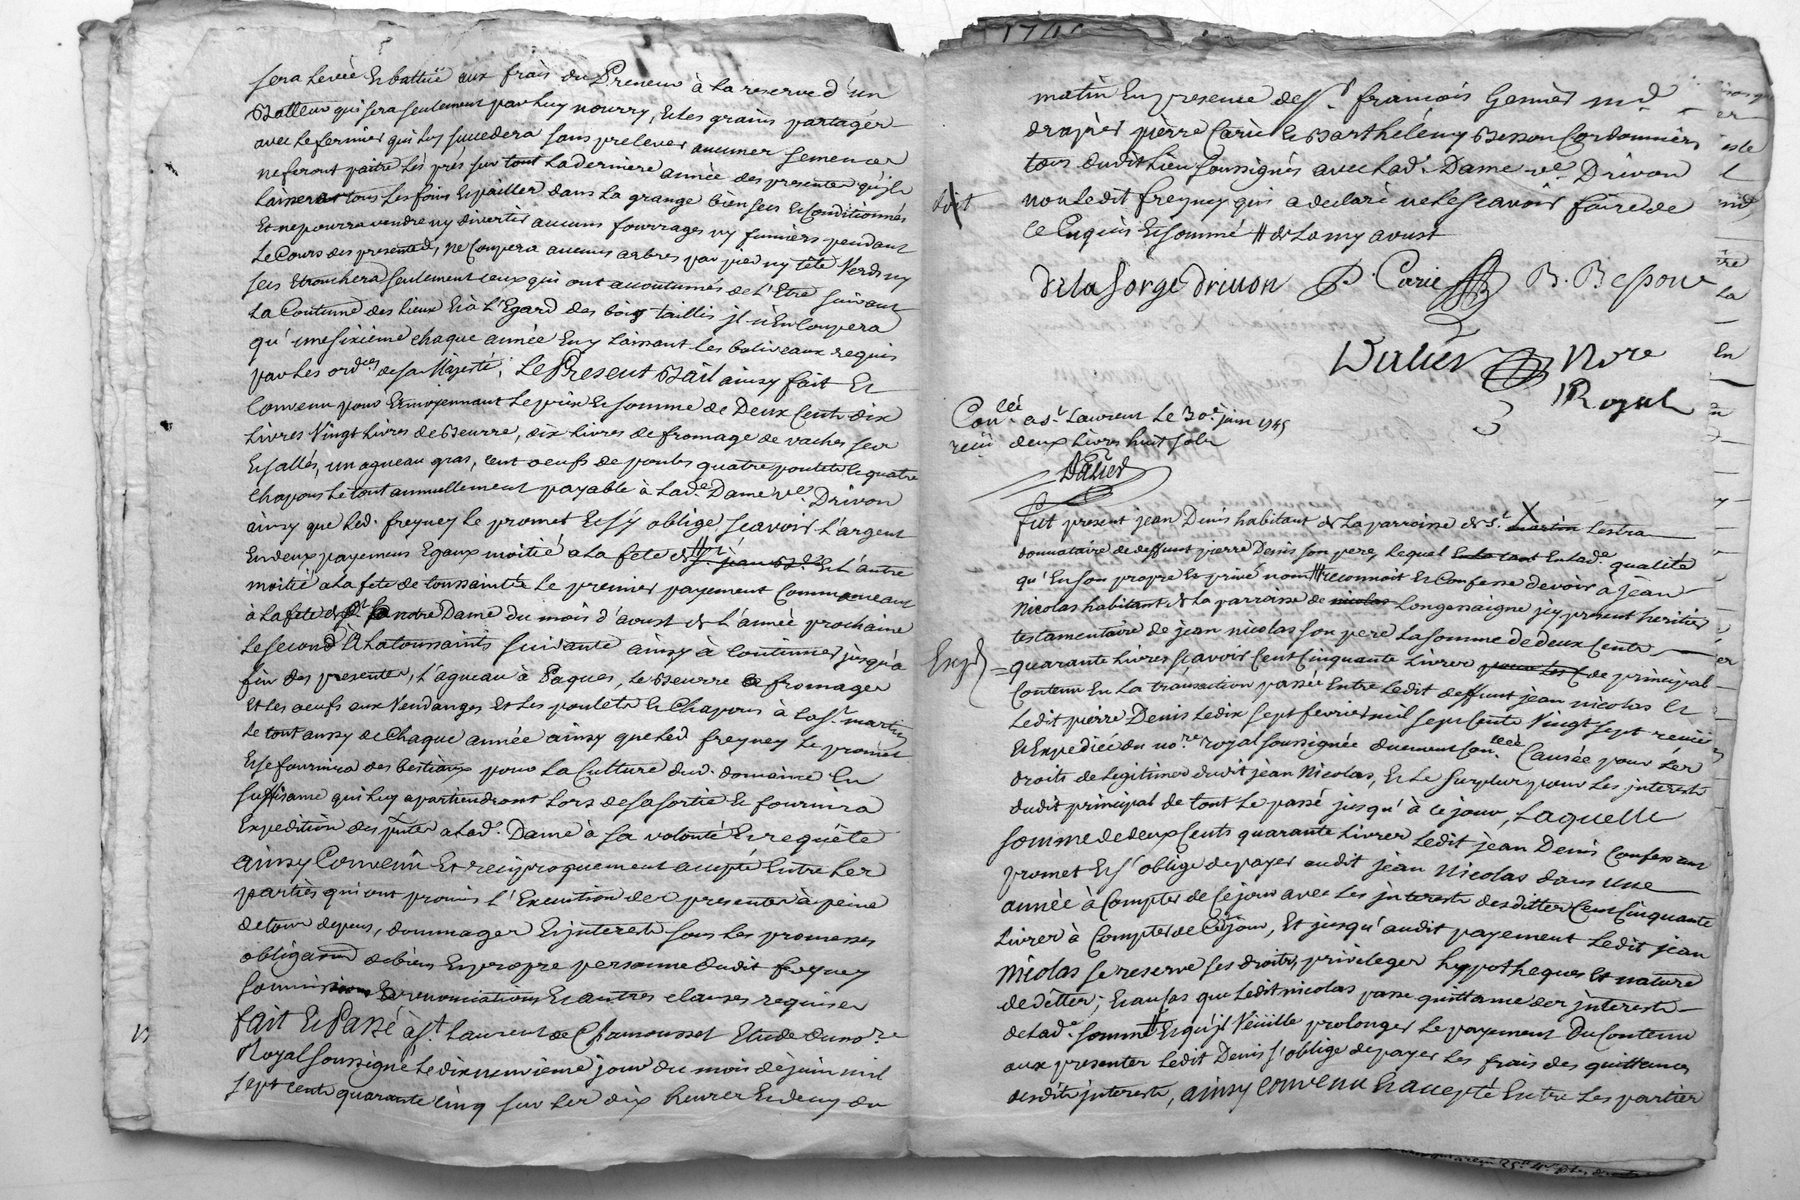 sera levée et battüe aux frais du Preneur à la reserve d'un
Batteur qui sera seulement par luy nourry, et les grains partager
avec le fermier qui luy succedera sans prelever aucunes semences
ne feront paitre les prés sur tout la derniere année des presentes qu'il
laissera tous les foins et pailles dans la grange bien secs et conditionnés
et ne pourra vendre ny divertir aucuns fourrages ny fumiers pendant
le cours des presentes, ne coupera aucuns arbres par pied ny tête verds ny
secs et touchera seulement ceux qui ont accoutumés de l'Etre suivant
la Coutume des lieux et à l'Egard des bois taillis jl n'en coupera
qu'une sixieme chaque année en y laissant les baliveaux requis
par les ord.ces de sa Majesté; Le Present Bail ainsy fait et
convenu pour et moyennant le prix et somme de Deux Cent dix
livres Vingt livres de Beurre, dix livres de fromage de vaches sec
et sallés, un agneau gras, cent oeufs de poules quatre poulets et quatre
chapons le tout annuellement payable à lad.e Dame v.e Drivon
ainsy que led. freyney le promet et s'y oblige, scavoir l'argent
en deux payemens Egaux moitié a la fete de # st jean Bd. et l'autre
moitié a la fete de toussaints le premier payement Commenceant
à la fete de notre Dame du mois d'aoust de l'année prochaine
le second à la toussaints suivante ainsy à continuer jusqu'a
fin des presentes, l'agneau à Paques, le Beurre et fromage
et les oeufs aux Vendanges et les poulets et Chapons à la St. martin
le tout aussy de chaque année ainsy que led freyney le promet
et se fournira des bestiaux pour la Culture dud. domaine en
suffisame qui luy apartiendront lors de sa sortie et fournira
Expedition des pntes a lad.e Dame à sa volonté et requête
ainsy Convenû et reciproquement accepté entre les
parties qui ont promis l'Execution des presentes à peine
de tous depens, dommages et jnterests sous les promesses
obliga͠on de biens en propre personne dudit freyney
soumissions et renonciations et autres clauses requises
fait et Passé à St. Laurent de Chamousset Etude du no.re
Royal soussigné le dix neuvieme jour du mois de juin mil
sept cents quarante cinq sur les dix heures et demy du
matin En presence de Srs. françois Genier m.d
drapier pierre Carie et Barthélemy Besson Cordonniers
tous dudit lieu soussignés avec lad.e Dame v.e Drivon
non ledit freyney qui a declaré ne le scavoir faire de
ce Enquis et sommé # de la my aoust
dela forge drivon P. Carie B. Besson
Dalier Nore
Royal
Con.llé a St. Laurent le 30.e juin 1745
reçû deux livres huit sols
Dalier
fut present jean Denis habitant de la parroisse de St. martin Lestra
donnataire de deffunt pierre Denis son pere, lequel en lad.e qualité
qu'En son propre et privé nom # reconnoit et Confesse devoir à jean
Nicolas habitant de la parroisse de nicolas Longessaigne jcy present heritier
testamentaire de jean nicolas son pere la somme de deux cents
Exp.d quarante livres scavoir Cent Cinquante livres pour les de principal
Contenu En la transaction passée Entre ledit deffunt jean nicolas et
ledit pierre Denis le dix sept fevrier mil sept cents vingt sept reçüe
et Expediée du no.re royal soussigné duement con.llée Causée pour les
droits de legitimes dudit jean Nicolas, et le surplus pour les jnterests
dudit principal de tout le passé jusqu'à ce jour, Laquelle
somme de deux Cents quarante livres ledit jean Denis Confessant
promet et s'oblige de payer audit jean Nicolas dans une
année à compter de ce jour avec les jnterests desdittes Cent Cinquante
livres à compter de ce jour, Et jusqu'audit payement ledit jean
Nicolas se reserve ses droits, privileges hypotheques et nature
de dettes; et au cas que ledit nicolas passe quittance des jnterests
de lad.e somme et qu'jl Veüille prolonger le payement du contenu
aux presentes ledit Denis s'oblige de payer les frais des quittances
desdits jnterests, ainsy convenu et accepté Entre les parties